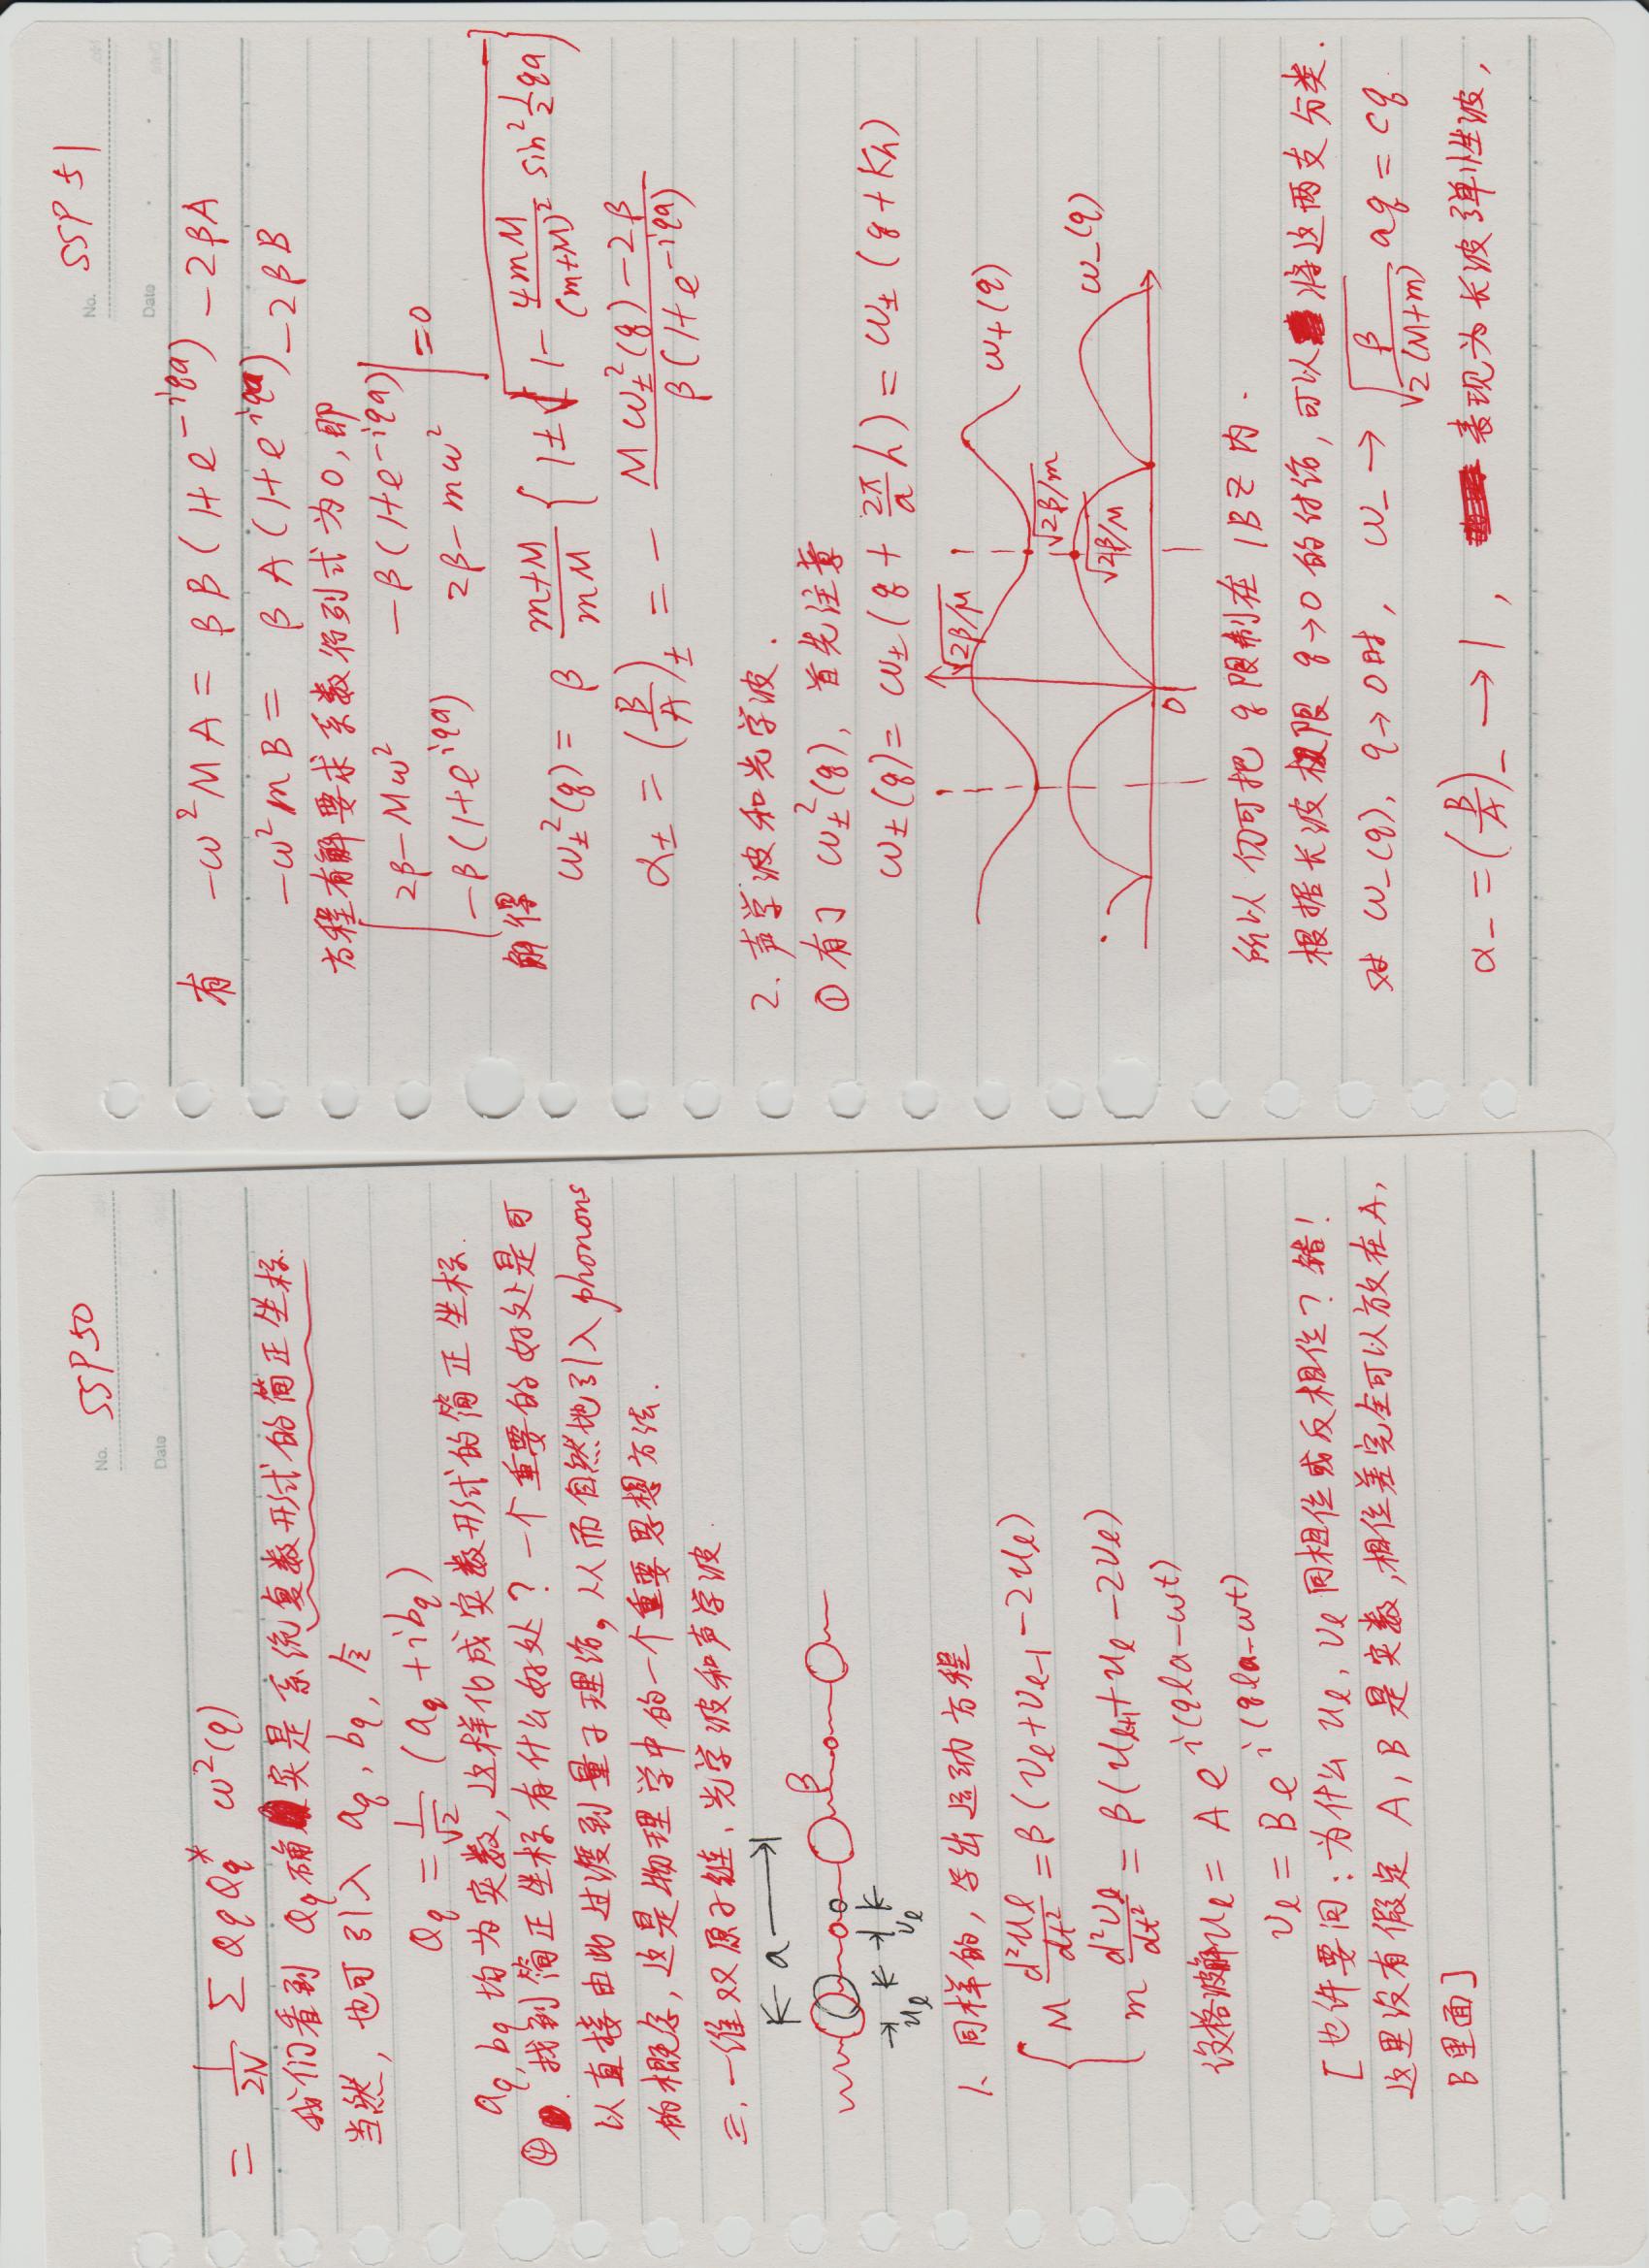 No. SSP50
Date
= 1/2N Σ Qq Qq* ω²(q)
我们看到 Qq 确实是系统复数形式的简正坐标.
当然, 也可引入 aq, bq, 令
Qq = 1/√2 (aq + ibq)
aq, bq 均为实数, 这样化成实数形式的简正坐标.
④. 找到简正坐标有什么好处? 一个重要的好处是可
以直接由此过渡到量子理论。从而自然地引入 phonons
的概念, 这是物理学中的一个重要思想方法.
三. 一维双原子链、光学波和声学波.
a
β
uℓ vℓ
1. 同样的, 写出运动方程
{ M d²uℓ/dt² = β(vℓ + vℓ-1 - 2uℓ)
m d²vℓ/dt² = β(uℓ+1 + uℓ - 2vℓ)
设格波解 uℓ = A e^{i(qℓa-ωt)}
vℓ = B e^{i(qℓa-ωt)}
[也许要问: 为什么 uℓ, vℓ 同相位或反相位? 错!
这里没有假定 A, B 是实数, 相位差完全可以放在 A,
B 里面]
No. SSP 51
Date
有 -ω²MA = βB(1+e^{-iqa}) - 2βA
-ω²mB = βA(1+e^{iqa}) - 2βB
方程有解要求系数行列式为0, 即
| 2β-Mω² -β(1+e^{-iqa}) |
| -β(1+e^{iqa}) 2β-mω² | = 0
解得
ω±²(q) = β (m+M)/mM { 1 ± √(1 - 4mM/(m+M)² sin² ½qa) }
α± = (B/A)± = - (Mω±²(q) - 2β)/(β(1+e^{-iqa}))
2. 声学波和光学波.
① 有了 ω±²(q), 首先注意
ω±(q) = ω±(q + 2π/a h) = ω±(q + Kh)
√2β/μ
ω+(q)
√2β/m
√2β/M
ω-(q)
0
所以仍可把 q 限制在 1BZ 内.
根据长波极限 q→0 的讨论, 可以将这两支分类.
对 ω-(q), q→0时, ω- → √(β/2(M+m)) aq = cq.
α- = (B/A)- → 1, 表现为长波弹性波,